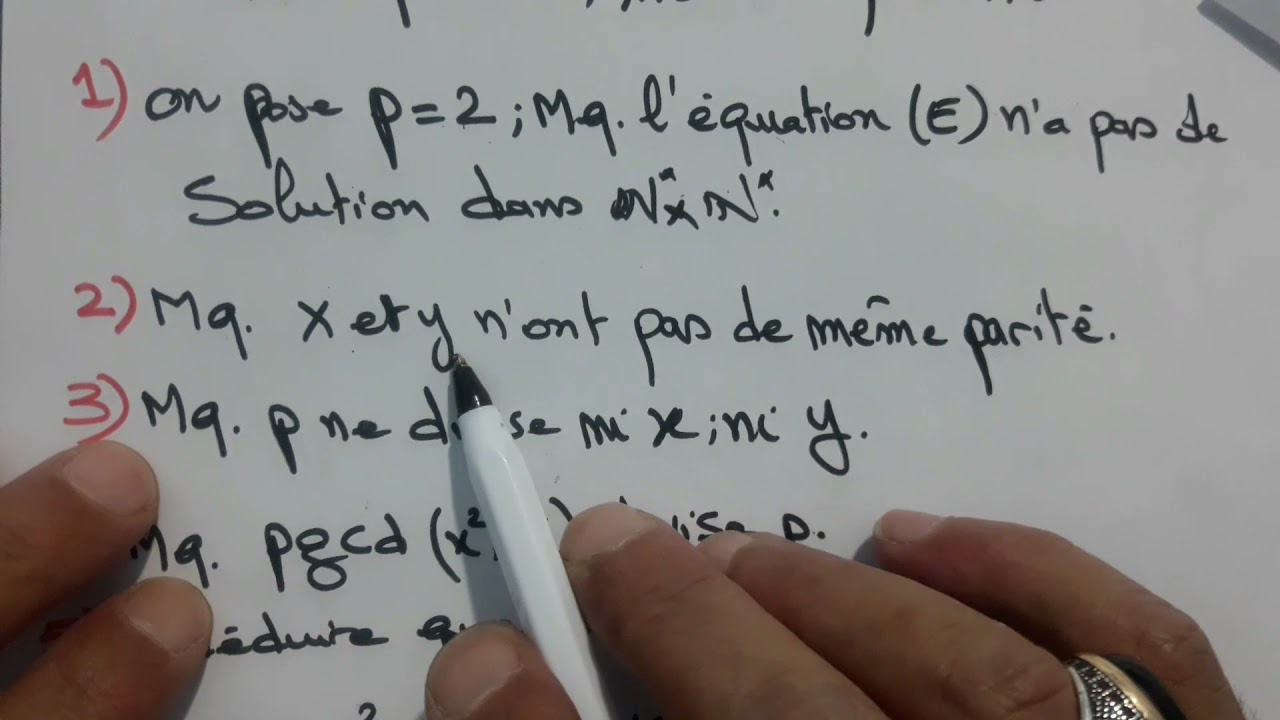 1) on pose p = 2 ; Mq. l'équation (E) n'a pas de
Solution dans N* x N*.
2) Mq. x et y n'ont pas de même parité.
3) Mq. p ne divise ni x ; ni y.
Mq. pgcd (x²,
p.
éduire
2